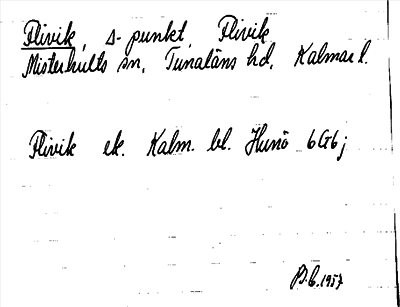 Flivik, s-punkt, Flivik
Misterhults sn, Tunaläns hd, Kalmar l.
Flivik ek. Kalm. bl. Hunö 6G6j
B.C. 1957